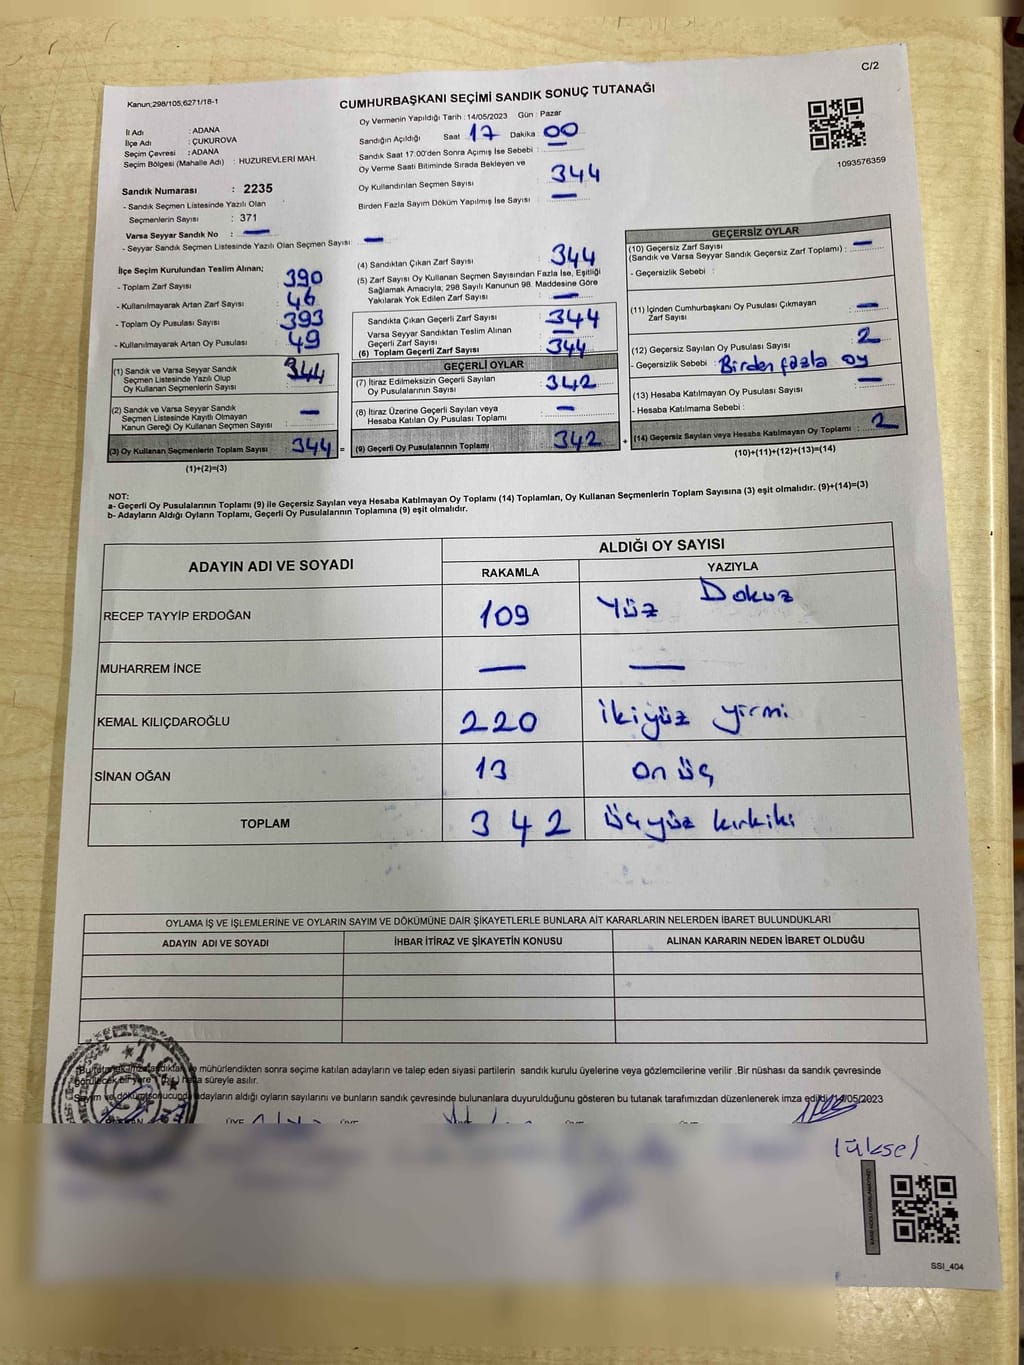 C/2
Kanun;298/105,6271/18-1
CUMHURBAŞKANI SEÇİMİ SANDIK SONUÇ TUTANAĞI
İl Adı : ADANA
İlçe Adı : ÇUKUROVA
Seçim Çevresi : ADANA
Seçim Bölgesi (Mahalle Adı) : HUZUREVLERİ MAH.
Sandık Numarası : 2235
- Sandık Seçmen Listesinde Yazılı Olan
Seçmenlerin Sayısı : 371
Varsa Seyyar Sandık No : —
- Seyyar Sandık Seçmen Listesinde Yazılı Olan Seçmen Sayısı : —
Oy Vermenin Yapıldığı Tarih : 14/05/2023 Gün : Pazar
Sandığın Açıldığı Saat 17 Dakika 00
Sandık Saat 17:00'den Sonra Açımış İse Sebebi : —
Oy Verme Saati Bitiminde Sırada Bekleyen ve
Oy Kullandırılan Seçmen Sayısı 344
Birden Fazla Sayım Döküm Yapılmış İse Sayısı : —
1093576359
İlçe Seçim Kurulundan Teslim Alınan;
- Toplam Zarf Sayısı : 390
- Kullanılmayarak Artan Zarf Sayısı : 46
- Toplam Oy Pusulası Sayısı : 393
- Kullanılmayarak Artan Oy Pusulası : 49
(1) Sandık ve Varsa Seyyar Sandık
Seçmen Listesinde Yazılı Olup
Oy Kullanan Seçmenlerin Sayısı : 344
(2) Sandık ve Varsa Seyyar Sandık
Seçmen Listesinde Kayıtlı Olmayan
Kanun Gereği Oy Kullanan Seçmen Sayısı : —
(3) Oy Kullanan Seçmenlerin Toplam Sayısı : 344 =
(1)+(2)=(3)
(4) Sandıktan Çıkan Zarf Sayısı : 344
(5) Zarf Sayısı Oy Kullanan Seçmen Sayısından Fazla İse, Eşitliği
Sağlamak Amacıyla; 298 Sayılı Kanunun 98. Maddesine Göre
Yakılarak Yok Edilen Zarf Sayısı : —
Sandıkta Çıkan Geçerli Zarf Sayısı : 344
Varsa Seyyar Sandıktan Teslim Alınan
Geçerli Zarf Sayısı : —
(6) Toplam Geçerli Zarf Sayısı : 344
GEÇERLİ OYLAR
(7) İtiraz Edilmeksizin Geçerli Sayılan
Oy Pusulalarının Sayısı : 342
(8) İtiraz Üzerine Geçerli Sayılan veya
Hesaba Katılan Oy Pusulası Toplamı : —
(9) Geçerli Oy Pusulalarının Toplamı : 342 +
GEÇERSİZ OYLAR
(10) Geçersiz Zarf Sayısı
(Sandık ve Varsa Seyyar Sandık Geçersiz Zarf Toplamı) : —
- Geçersizlik Sebebi :
(11) İçinden Cumhurbaşkanı Oy Pusulası Çıkmayan
Zarf Sayısı : —
(12) Geçersiz Sayılan Oy Pusulası Sayısı : 2
- Geçersizlik Sebebi : Birden fazla oy
(13) Hesaba Katılmayan Oy Pusulası Sayısı : —
- Hesaba Katılmama Sebebi :
(14) Geçersiz Sayılan veya Hesaba Katılmayan Oy Toplamı : 2
(10)+(11)+(12)+(13)=(14)
NOT:
a- Geçerli Oy Pusulalarının Toplamı (9) ile Geçersiz Sayılan veya Hesaba Katılmayan Oy Toplamı (14) Toplamları, Oy Kullanan Seçmenlerin Toplam Sayısına (3) eşit olmalıdır. (9)+(14)=(3)
b- Adayların Aldığı Oyların Toplamı, Geçerli Oy Pusulalarının Toplamına (9) eşit olmalıdır.
ADAYIN ADI VE SOYADI ALDIĞI OY SAYISI
RAKAMLA YAZIYLA
RECEP TAYYİP ERDOĞAN 109 Yüz Dokuz
MUHARREM İNCE — —
KEMAL KILIÇDAROĞLU 220 ikiyüz yirmi
SİNAN OĞAN 13 on üç
TOPLAM 342 üçyüz kırkiki
OYLAMA İŞ VE İŞLEMLERİNE VE OYLARIN SAYIM VE DÖKÜMÜNE DAİR ŞİKAYETLERLE BUNLARA AİT KARARLARIN NELERDEN İBARET BULUNDUKLARI
ADAYIN ADI VE SOYADI İHBAR İTİRAZ VE ŞİKAYETİN KONUSU ALINAN KARARIN NEDEN İBARET OLDUĞU
mühürlendikten sonra seçime katılan adayların ve talep eden siyasi partilerin sandık kurulu üyelerine veya gözlemcilerine verilir .Bir nüshası da sandık çevresinde
süreyle asılır.
adayların aldığı oyların sayılarını ve bunların sandık çevresinde bulunanlara duyurulduğunu gösteren bu tutanak tarafımızdan düzenlenerek imza edildi. 14/05/2023
SSI_404